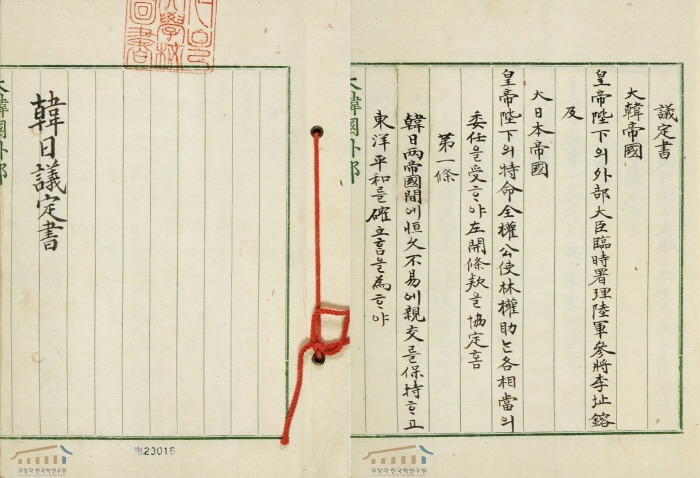 韓日議定書
大韓國外部
奎23016
규장각한국학연구원
議定書
大韓帝國
皇帝陛下의外部大臣臨時署理陸軍參將李址鎔
及
大日本帝國
皇帝陛下의特命全權公使林權助는各相當의
委任을受ᄒᆞ야左開條款을協定홈
第一條
韓日兩帝國間에恒久不易에親交를保持ᄒᆞ고
東洋平和를確立홈을為ᄒᆞ야
大韓國外部
규장각한국학연구원